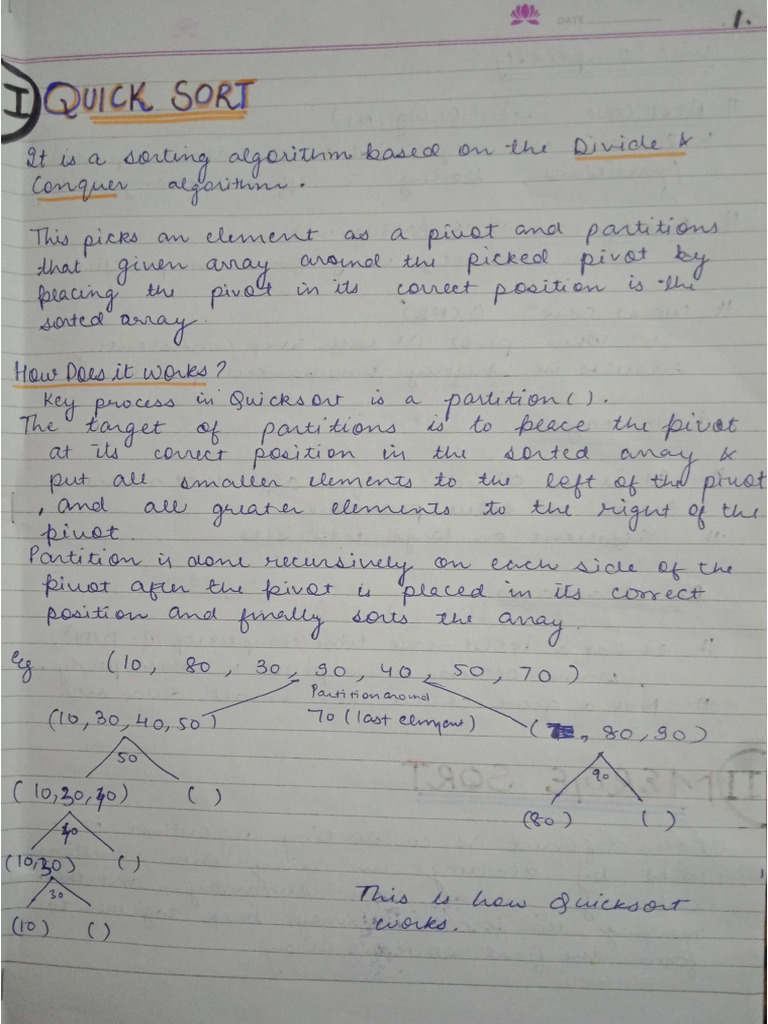 DATE
1.
I QUICK SORT
It is a sorting algorithm based on the Divide &
Conquer algorithm.
This picks an element as a pivot and partitions
that given array around the picked pivot by
placing the pivot in its correct position is the
sorted array.
How Does it works?
Key process in Quicksort is a partition().
The target of partitions is to place the pivot
at its correct position in the sorted array &
put all smaller elements to the left of the pivot
, and all greater elements to the right of the
pivot.
Partition is done recursively on each side of the
pivot after the pivot is placed in its correct
position and finally sorts the array.
Eg (10, 80, 30, 90, 40, 50, 70)
Partition around
(10,30,40,50) 70 (last element) ( , 80, 90)
50 90
(10,30,40) ( ) (80) ( )
40
(10,30) ( )
30
(10) ( )
This is how Quicksort
works.